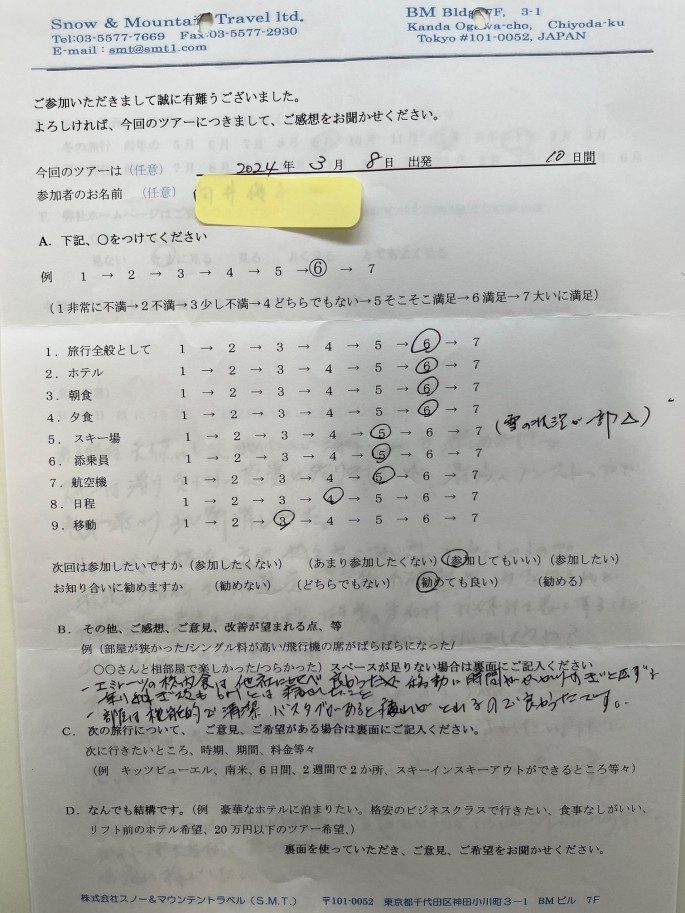 Snow & Mountain Travel ltd.
Tel:03-5577-7669 Fax:03-5577-2930
E-mail : smt@smt1.com
BM Bldg 7F, 3-1
Kanda Ogawa-cho, Chiyoda-ku
Tokyo #101-0052, JAPAN
ご参加いただきまして誠に有難うございました。
よろしければ、今回のツアーにつきまして、ご感想をお聞かせください。
今回のツアーは（任意） 2024 年 3 月 8 日 出発 10 日間
参加者のお名前 （任意）
A. 下記、○をつけてください
例 1 → 2 → 3 → 4 → 5 → ⑥ → 7
（1 非常に不満→2 不満→3 少し不満→4 どちらでもない→5 そこそこ満足→6 満足→7 大いに満足）
1．旅行全般として 1 → 2 → 3 → 4 → 5 → 6 → 7
2．ホテル 1 → 2 → 3 → 4 → 5 → 6 → 7
3．朝食 1 → 2 → 3 → 4 → 5 → 6 → 7
4．夕食 1 → 2 → 3 → 4 → 5 → 6 → 7
5．スキー場 1 → 2 → 3 → 4 → 5 → 6 → 7 （雪の状況が一部△）
6．添乗員 1 → 2 → 3 → 4 → 5 → 6 → 7
7．航空機 1 → 2 → 3 → 4 → 5 → 6 → 7
8．日程 1 → 2 → 3 → 4 → 5 → 6 → 7
9．移動 1 → 2 → 3 → 4 → 5 → 6 → 7
次回は参加したいですか（参加したくない） （あまり参加したくない）（参加してもいい）（参加したい）
お知り合いに勧めますか （勧めない） （どちらでもない） （勧めても良い） （勧める）
B. その他、ご感想、ご意見、改善が望まれる点、等
例（部屋が狭かった/シングル料が高い/飛行機の席がばらばらになった/
○○さんと相部屋で楽しかった/つらかった）スペースが足りない場合は裏面にご記入ください
・エミレーツの機内食は他社に比べ良かったが 移動に時間がかかりすぎ
・部屋は機能的で清潔 バスタブがあると疲れがとれるので良かったです。
C. 次の旅行について、 ご意見、ご希望がある場合は裏面にご記入ください。
次に行きたいところ、時期、期間、料金等々
（例 キッツビューエル、南米、6日間、2週間で2か所、スキーインスキーアウトができるところ等々）
D. なんでも結構です。（例 豪華なホテルに泊まりたい。格安のビジネスクラスで行きたい、食事なしがいい、
リフト前のホテル希望、20万円以下のツアー希望、）
裏面を使っていただき、ご意見、ご希望をお聞かせください。
株式会社スノー&マウンテントラベル（S.M.T.） 〒101-0052 東京都千代田区神田小川町3－1 BMビル 7F